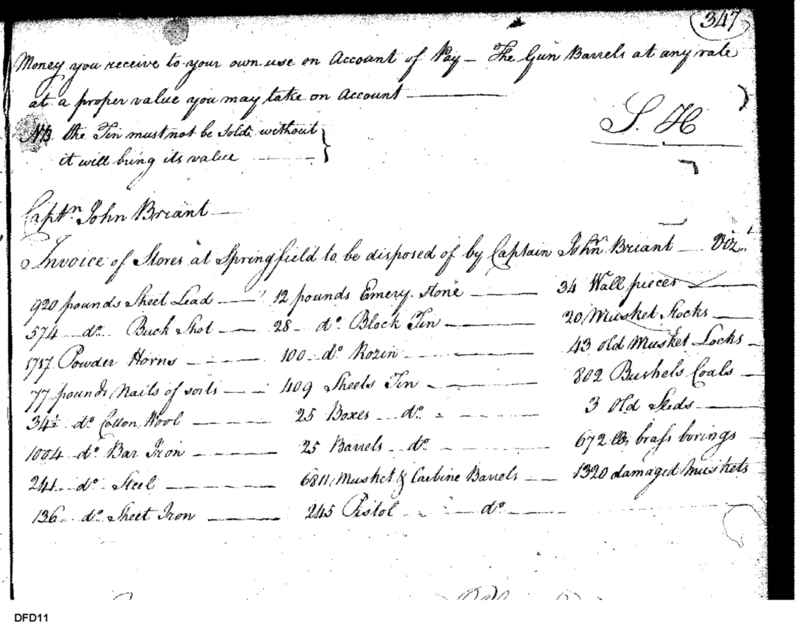 347
Money you receive to your own use on Account of Pay – The Gun Barrels at any rate
at a proper value you may take on Account
NB. the Tin must not be Sold without
it will bring its value
S. H
Captn John Briant
Invoice of Stores at Springfield to be disposed of by Captain John Briant – Vizt
920 pounds Sheet Lead 12 pounds Emery Stone 34 Wall pieces
574 do Buck Shot 28 do Block Tin 20 Musket Stocks
1717 Powder Horns 100 do Rozin 43 old Musket Locks
77 pounds Nails of sorts 409 Sheets Tin 802 Bushels Coals
34½ do Cotton Wool 25 Boxes do 3 Old Sleds
1004 do Bar Iron 25 Barrels do 672 lb brass borings
241 do Steel 6811 Musket & Carbine Barrels 1320 damaged Muskets
136 do Sheet Iron 245 Pistol do
DFD11